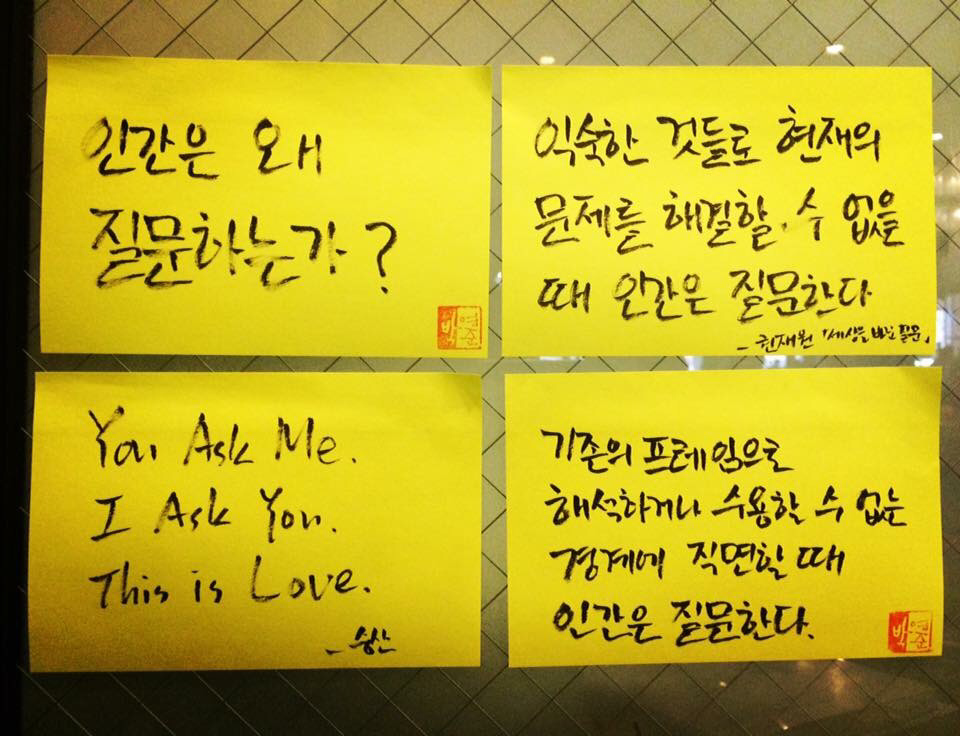 인간은 왜
질문하는가?
박영준
익숙한 것들로 현재의
문제를 해결할 수 없을
때 인간은 질문한다
- 권재원 「세상을 바꾼 질문」
You Ask Me.
I Ask You.
This is Love.
- 숭산
기존의 프레임으로
해석하거나 수용할 수 없는
경계에 직면할 때
인간은 질문한다.
박영준